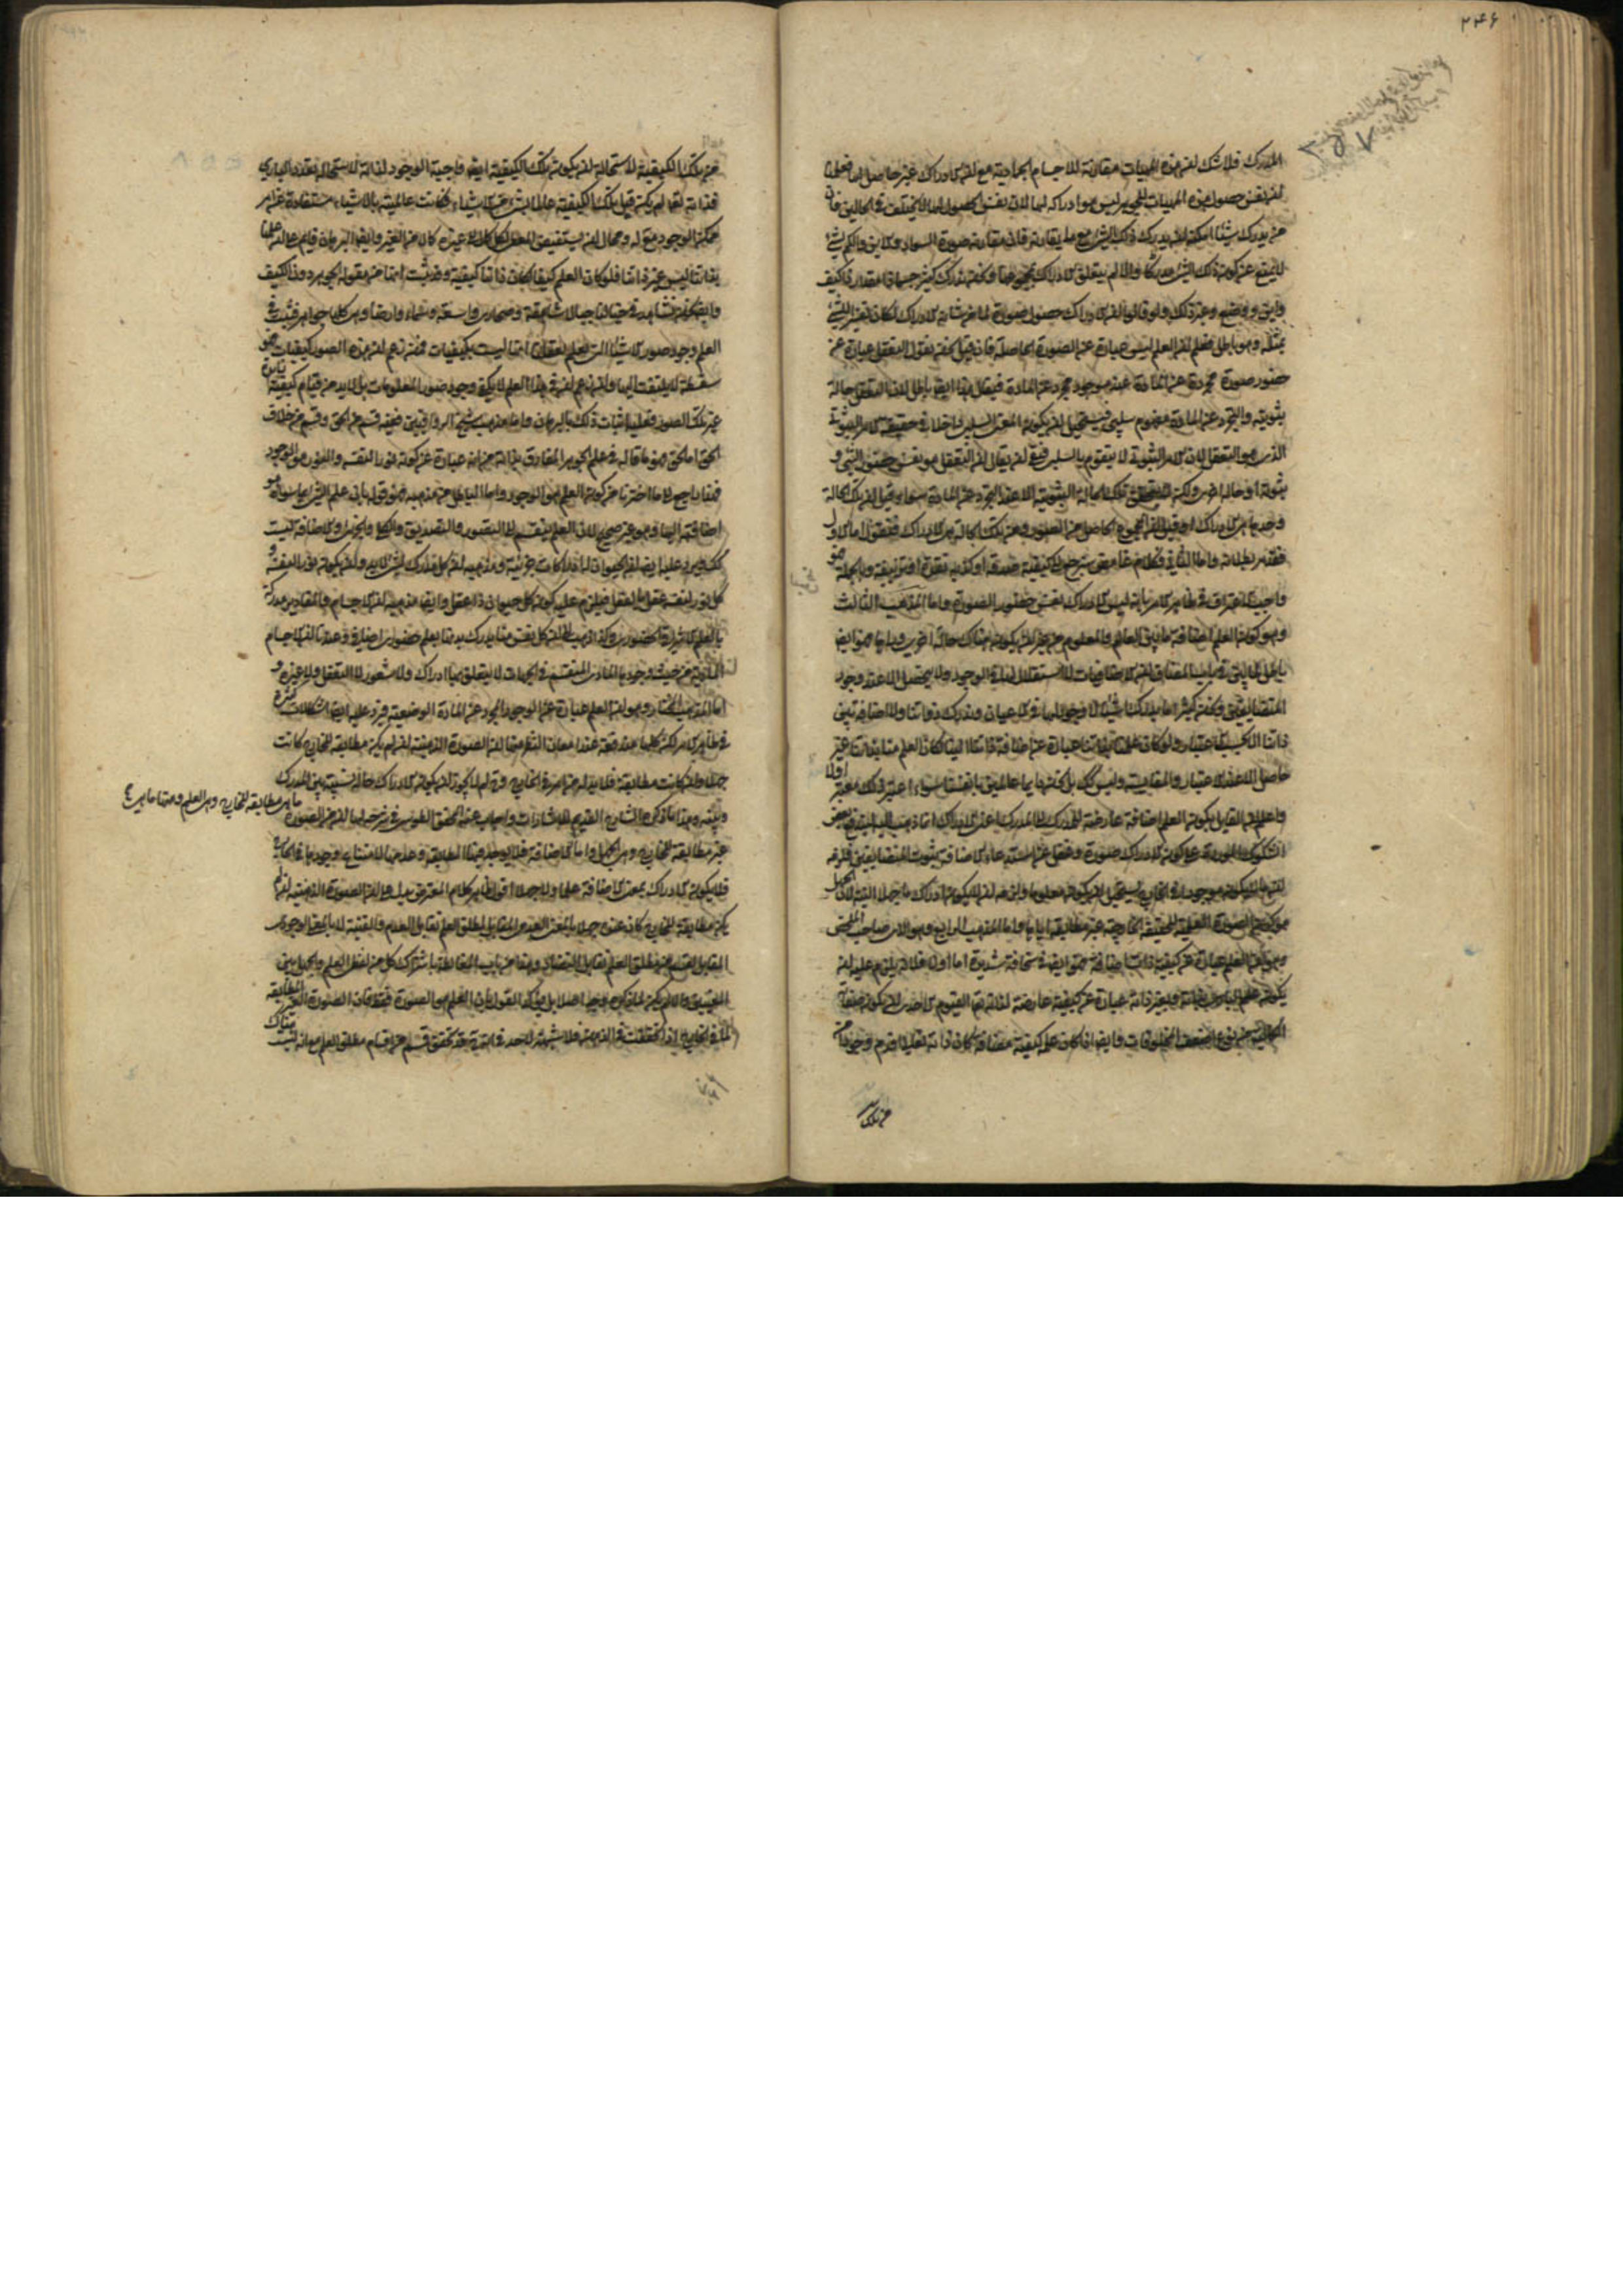 ٢٤۶
المدرك فلا شك ان هذه المهيات مقارنة للاجسام الجمادية مع ان الادراك غير حاصل لها فعلمنا
ان نفس حصول هذه المهيات للجوهر ليس هو ادراكه لها لان نفس الحصول لها لا يختلف في الحالين فان
من يدرك شيئا امكنه ان يدرك ذلك الشئ مع ما يقارنه فان مقارنة صورة السواد والاين والكم لشئ
لا يمنع عن كونه ذلك الشئ مدركا والا لم يتعلق الادراك بمجموعها وكنا ندرك كثيرا جسما ذا مقدار ذا كيف
واين ووضع وغير ذلك ولو قالوا ان الادراك حصول صورة لما من شانه الادراك لكان تفسير الشئ
بمثله وهو باطل فعلم ان العلم ليس عبارة عن الصورة الحاصلة فان قيل نحن نقول التعقل عبارة عن
حضور صورة مجردة عن المادة عند موجود مجرد عن المادة فيقال هذا ايضا باطل لان التعقل حالة
ثبوتية والتجرد عن المادة مفهوم سلبي فيستحيل ان يكون المعنى السلبي داخلا في حقيقة الامر الثبوتي
الذي هو التعقل لان الامر الثبوتي لا يتقوم بالسلب فبقي ان يقال ان التعقل هو نفس حضور الشئ و
ثبوته او حالة اخرى ولكن لا يتحقق تلك الحالة الثبوتية الا عند التجرد عن المادة سواء قيل ان تلك الحالة
وحدها هي الادراك او قيل المجموع الحاصل من الصورة ومن تلك الحالة هي الادراك فنقول اما الاول
فقد مر بطلانه واما الثاني
واجب الاعتراف في ظاهر الامر بانه ليس الادراك نفس حضور الصورة واما المذهب الثالث
وهو كون العلم اضافة ما بين العالم والمعلوم من غير ان يكون هناك حالة اخرى وراءها فهو ايضا
باطل لما بين في باب المضاف ان الاضافيات لا استقلال لها في الوجود ولا يتحصل الا عند وجود
المتضايفين ونحن كثيرا ما ندرك اشياء لا وجود لها في الاعيان وندرك ذواتنا ولا اضافة بين
ذاتنا وذاتنا الا بحسب الاعتبار ولو كان علمنا بذاتنا عبارة عن اضافة ذاتنا الينا لكان العلم منا بذاتنا غير
حاصل الا عند الاعتبار والمقايسة وليس كذلك بل نحن دائما عالمين بانفسنا سواء اعتبر ذلك معتبر اولا
واعلم ان القايل بكون العلم اضافة عارضة للمدرك الى المدرك اعني الادراك انما ذهب اليه ليندفع بعض
الشكوك الموردة على كون الادراك صورة وغفل عن استدعاء الاضافة ثبوت المتضايفين فلزمه
ان ما لا يكون موجودا في الخارج يستحيل ان يكون معلوما ولزمه ان لا يكون ادراك ما جهلا البتة لان الجهل
هو كون الصورة العلمية للحقيقة الخارجية غير مطابقة اياها واما المذهب الرابع وهو الذي صاحب الملخص
وهو ان العلم عبارة عن كيفية ذات اضافة فهو ايضا في سخافة شديدة اما اولا فلانه يلزم عليه ان
يكون علم الباري بذاته وبغير ذاته عبارة عن كيفية عارضة لذاته تعالى القيوم الاحدي ان يكون صفاته
الكمالية من نوع اضعف المخلوقات وايضا اذا كان علمه كيفية مضافة لكان ذاته تعالى اقدم وجودا من
من تلك
من تلك الكيفية لاستحالة ان يكون تلك الكيفية ايضا واجبة الوجود لذاته لاستحالة تعدد الباري
فذاته تعالى لم يكن قبل تلك الكيفية عالما بشئ من الاشياء فكانت عالميته بالاشياء مستفادة عن امر
ممكن الوجود معلول له ومحال ان يستفيض المعطي لكل كمال عن غيره كان من الغير وايضا البرهان قايم على ان علمنا
بذاتنا ليس غير ذاتنا فلو كان العلم كيفا لكان ذاتنا كيفية وقد ثبت انها من مقولة الجوهر دون الكيف
وايضا نحن نشاهد في خيالنا جبالا شاهقة وصحاري واسعة وسماء وارضا وهي كلها جواهر فثبت في
العلم وجود صور الاشياء التي نعلم بعقلنا انها ليست بكيفيات فمن زعم ان هذه الصور كيفيات فهو
سفسطة لا يلتفت اليها وان زعم ان في هذا العلم لا يكفي وجود صور المعلومات بل لا بد من قيام كيفية
غير تلك الصور فعليه اثبات ذلك بالبرهان واما مذهب شيخ الرواقيين ففيه قسم من الحق وقسم من خلاف
الحق اما الحق فهو ما قاله في علم الجوهر المفارق بذاته من انه عبارة عن كونه نورا لنفسه والنور هو الوجود
فهذا راجع الى ما اخترناه من كون العلم هو الوجود واما الباطل من مذهبه فهو قوله بان علم الشئ بما سواه هو
اضافته اليها وهو غير صحيح لان العلم ينقسم الى التصور والتصديق والكلي والجزئي والاضافة ليست
كذلك ويرد عليه ايضا ان الحيوان لها ادراكات جزئية ومن مذهبه ان كل مدرك لشئ لا بد وان يكون نورا لنفسه و
كل نور لنفسه عقل بالفعل فيلزم عليه كون كل حيوان ذا عقل وايضا مذهبه ان الاجسام والمقادير مدركة
بالعلم الاشراقي الحضوري وكذا ذهب الى ان كل نفس منا يدرك بدنها بعلم حضوري اضافي وعندنا ان الاجسام
المادية من حيث وجودها المادي المنقسم في الجهات لا يتعلق بها ادراك ولا شعور لا التعقل ولا غيره و
اما المذهب المختار وهو ان العلم عبارة عن الوجود المجرد عن المادة الوضعية فيرد عليه ايضا اشكالات كثيرة
في ظاهر الامر لكن كلها مندفعة عند امعان النظر منها ان الصورة الذهنية ان لم يكن مطابقة للخارج كانت
جهلا وان كانت مطابقة فلا بد له من امر في الخارج وح لم لا يجوز ان يكون الادراك حالة نسبية بين المدرك
وبينه وهذا ما ذكره الشارح القديم للاشارات واجاب عنه المحقق الطوسي في شرحه لها ان من الصورة
ما هي مطابقة للخارج وهي العلم ومنها ما هي
غير مطابقة للخارج وهي الجهل واما الاضافة فلا يوجد فيها المطابقة وعدمها لامتناع وجودها في الخارج
فلا يكون الادراك بمعنى الاضافة علما ولا جهلا اقول ظاهر كلام المعترض يدل على ان الصورة الذهنية ان لم
يكن مطابقة للخارج كان عنده جهلا بالمعنى العدمي المقابل لمطلق العلم تقابل العدم والقنية لا بالمعنى الوجودي
المقابل لقسم من مطلق العلم تقابل التضاد وهذا من باب المغالطة باشتراك كل من لفظ العلم والجهل بين
المعنيين والا لم يكن لما ذكره وجه اصلا بل يؤكد القول بان العلم هو الصورة فقط فان الصورة الغير المطابقة
لما في الخارج اذا تحققت في الذهن فلا شبهة لاحد في انه قد تحقق قسم من اقسام مطلق العلم مع انه ليست هناك